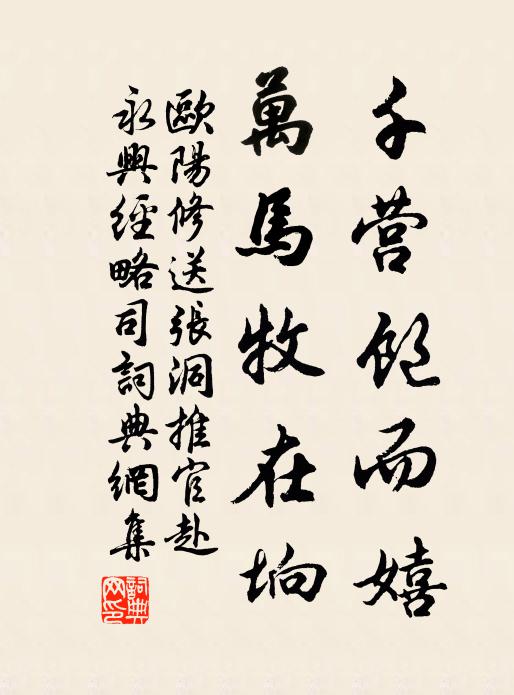 千营飽而嬉
萬馬牧在坰
歐陽修送張洞推官赴
永興經略司詞典網集
詞典网印